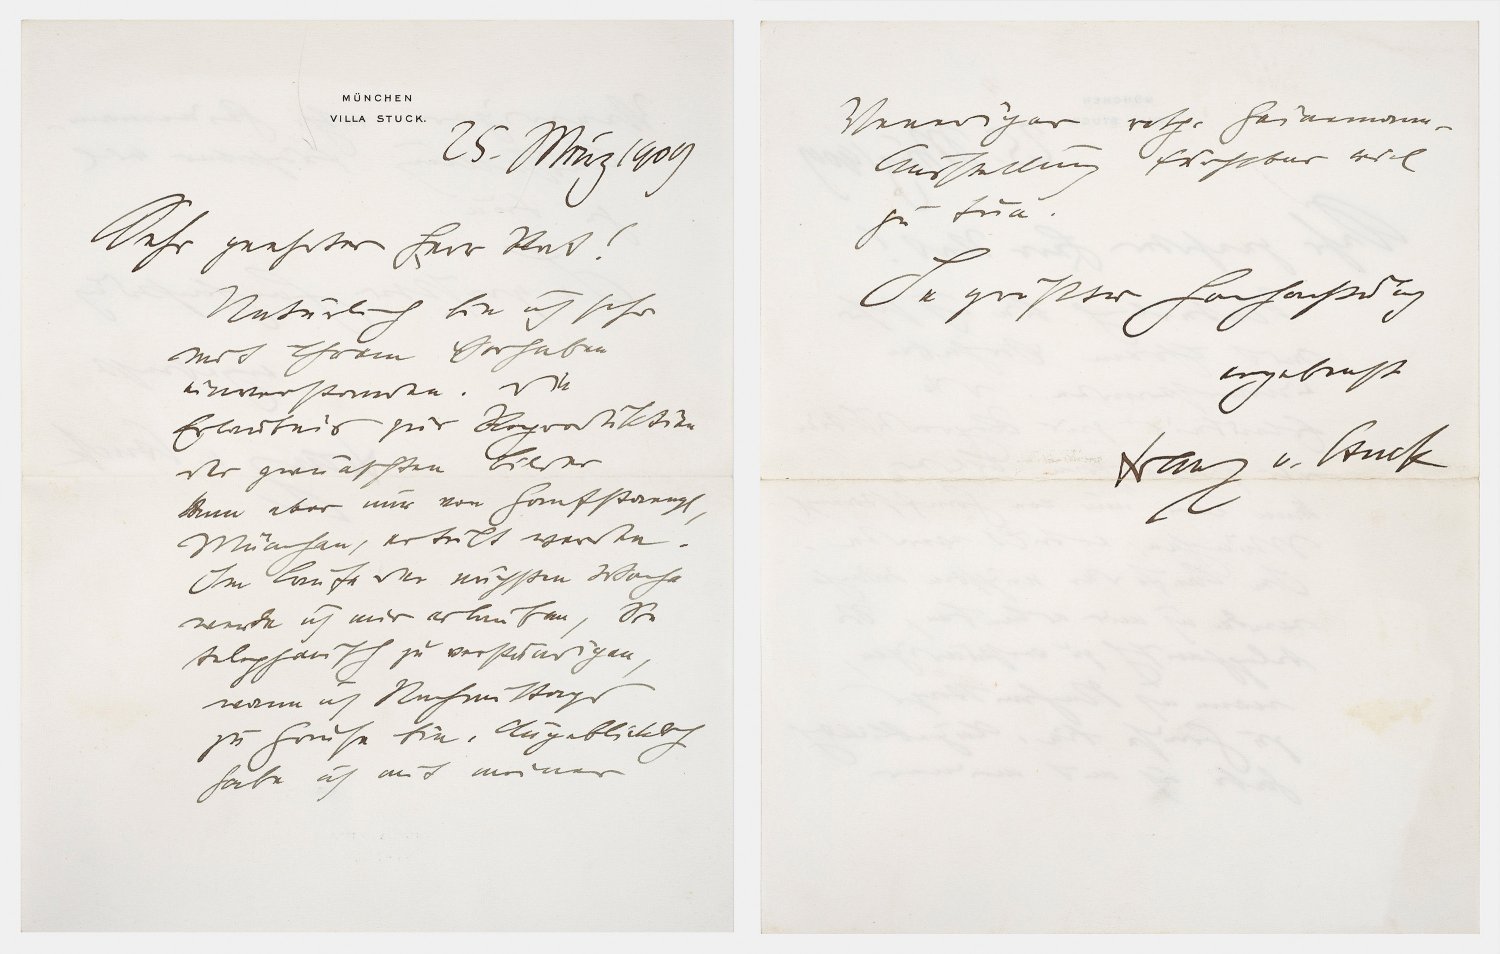 MÜNCHEN
VILLA STUCK.
25. März 1909
Sehr geehrter Herr Rat!
Natürlich bin ich sehr
mit Ihrem Vorhaben
einverstanden. Die
Erlaubnis zur Reproduktion
der gewünschten Bilder
kann aber nur von Hanfstaengl,
München, erteilt werden.
Im Laufe der nächsten Woche
werde ich mir erlauben, Sie
telephonisch zu verständigen,
wann ich Nachmittags
zu Hause bin. Augenblicklich
habe ich mit meiner
Venediger resp. Heinemann-
Ausstellung furchtbar viel
zu tun.
In größter Hochachtung
ergebenst
Franz v. Stuck